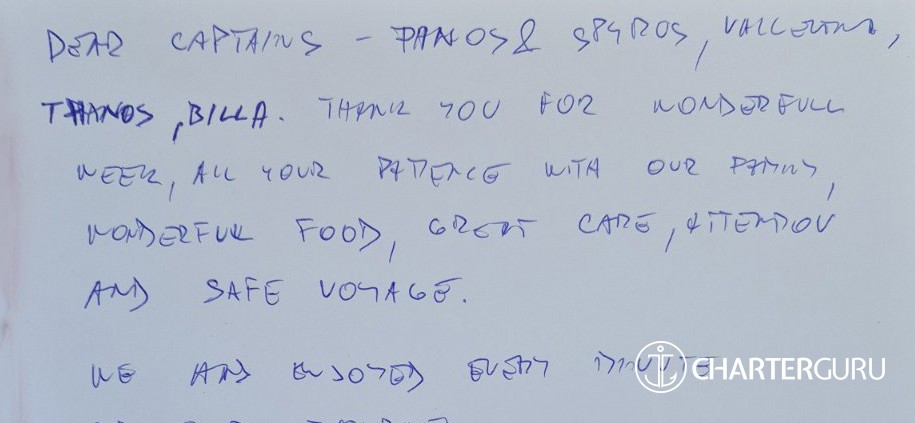 DEAR CAPTAINS – PANOS & SPYROS, VALLENTINA,
THANOS, BILLA. THANK YOU FOR WONDERFULL
WEEK, ALL YOUR PATIENCE WITH OUR FAMILY,
WONDERFUL FOOD, GREAT CARE, ATTENTION
AND SAFE VOYAGE.
WE AND ENJOYED EVERY MINUTE
CHARTERGURU